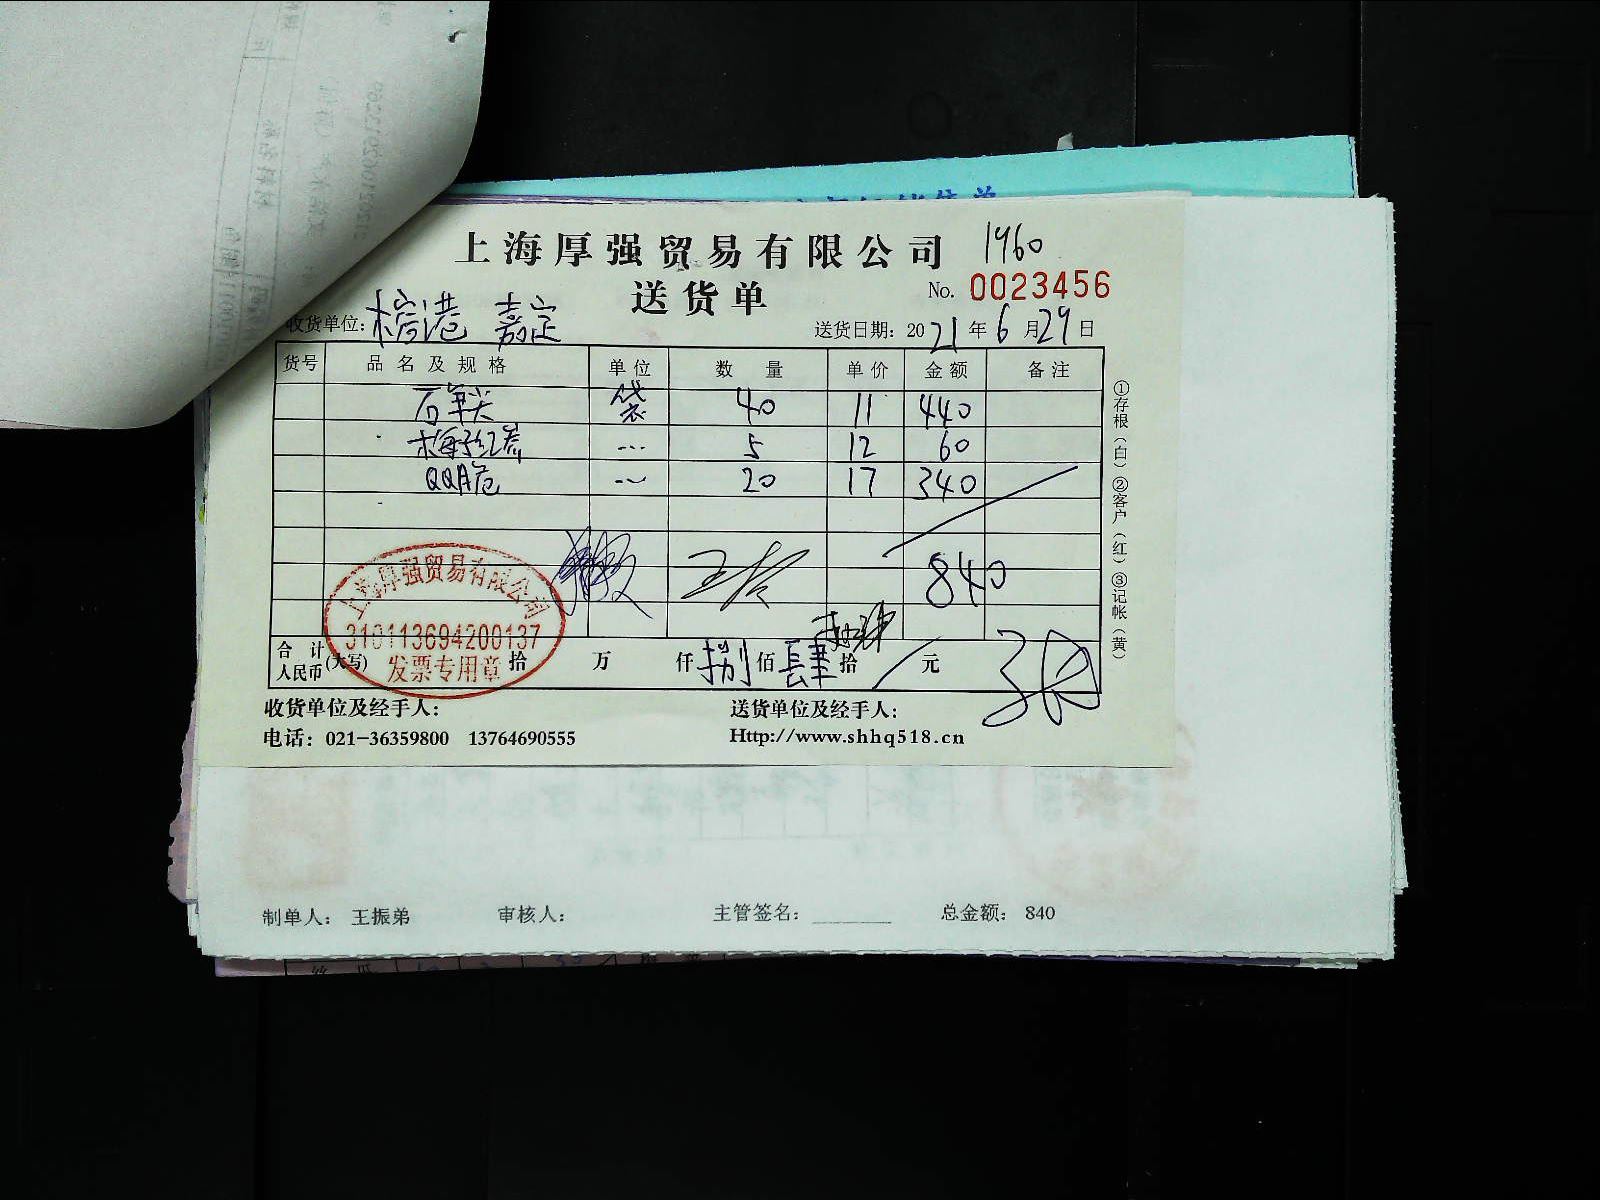 上海厚强贸易有限公司 1960
送货单 No. 0023456
收货单位: 榕港 嘉定 送货日期: 2021年6月29日
货号 品名及规格 单位 数量 单价 金额 备注
袋 40 11 440
5 12 60
QQ脆 20 17 340
840
上海厚强贸易有限公司
310113694200137
发票专用章
合计人民币(大写) 拾 万 仟 捌 佰 肆 拾 元
①存根(白)②客户(红)③记帐(黄)
收货单位及经手人: 送货单位及经手人:
电话: 021-36359800 13764690555 Http://www.shhq518.cn
制单人: 王振弟 审核人: 主管签名: ________ 总金额: 840